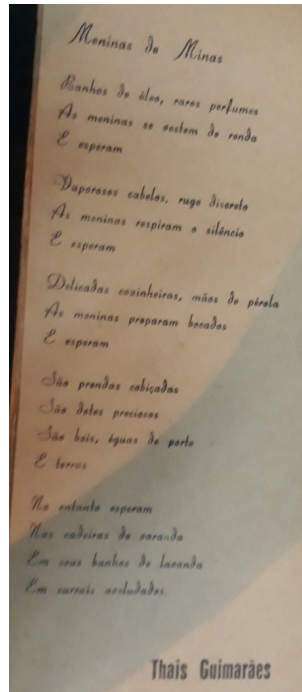 Meninas de Minas
Banhos de óleo, raros perfumes
As meninas se vestem de renda
E esperam
Vaporosos cabelos, ruge discreto
As meninas respiram o silêncio
E esperam
Delicadas cozinheiras, mãos de pérola
As meninas preparam bocados
E esperam
São prendas cobiçadas
São dotes preciosos
São bois, éguas de porte
E terras
No entanto esperam
Nas cadeiras de varanda
Em seus banhos de lavanda
Em currais aveludados.
Thais Guimarães